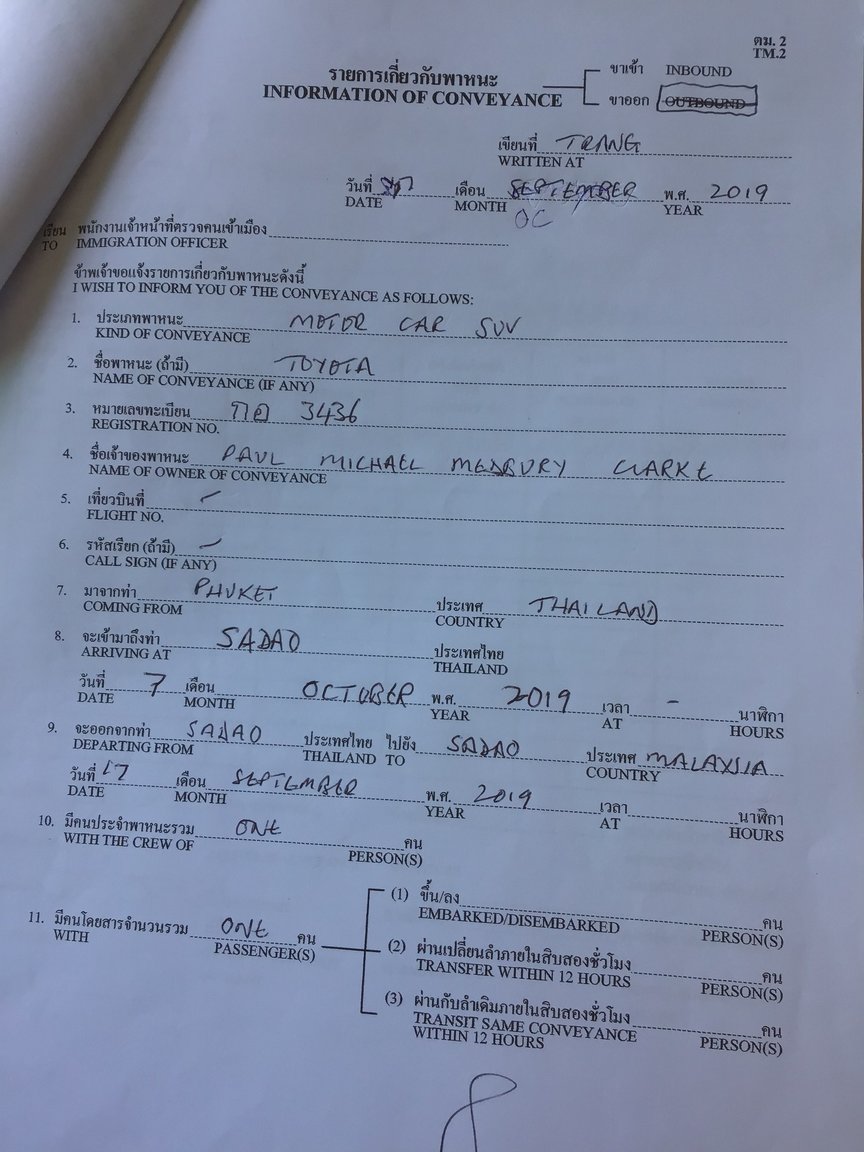 ตม. 2
TM.2
รายการเกี่ยวกับพาหนะ
INFORMATION OF CONVEYANCE
ขาเข้า INBOUND
ขาออก OUTBOUND
เขียนที่ TRANG
WRITTEN AT
วันที่ เดือน SEPTEMBER พ.ศ. 2019
DATE MONTH OC YEAR
เรียน พนักงานเจ้าหน้าที่ตรวจคนเข้าเมือง
TO IMMIGRATION OFFICER
ข้าพเจ้าขอแจ้งรายการเกี่ยวกับพาหนะดังนี้
I WISH TO INFORM YOU OF THE CONVEYANCE AS FOLLOWS:
1. ประเภทพาหนะ MOTOR CAR SUV
KIND OF CONVEYANCE
2. ชื่อพาหนะ (ถ้ามี) TOYOTA
NAME OF CONVEYANCE (IF ANY)
3. หมายเลขทะเบียน 3436
REGISTRATION NO.
4. ชื่อเจ้าของพาหนะ PAUL MICHAEL MEDBURY CLARKE
NAME OF OWNER OF CONVEYANCE
5. เที่ยวบินที่ -
FLIGHT NO.
6. รหัสเรียก (ถ้ามี) -
CALL SIGN (IF ANY)
7. มาจากท่า PHUKET ประเทศ THAILAND
COMING FROM COUNTRY
8. จะเข้ามาถึงท่า SADAO ประเทศไทย
ARRIVING AT THAILAND
วันที่ 7 เดือน OCTOBER พ.ศ. 2019 เวลา - นาฬิกา
DATE MONTH YEAR AT HOURS
9. จะออกจากท่า SADAO ประเทศไทย ไปยัง SADAO ประเทศ MALAYSIA
DEPARTING FROM THAILAND TO COUNTRY
วันที่ 17 เดือน SEPTEMBER พ.ศ. 2019 เวลา นาฬิกา
DATE MONTH YEAR AT HOURS
10. มีคนประจำพาหนะรวม ONE คน
WITH THE CREW OF PERSON(S)
11. มีคนโดยสารจำนวนรวม ONE คน
WITH PASSENGER(S)
(1) ขึ้น/ลง คน
EMBARKED/DISEMBARKED PERSON(S)
(2) ผ่านเปลี่ยนลำภายในสิบสองชั่วโมง คน
TRANSFER WITHIN 12 HOURS PERSON(S)
(3) ผ่านกับลำเดิมภายในสิบสองชั่วโมง คน
TRANSIT SAME CONVEYANCE PERSON(S)
WITHIN 12 HOURS